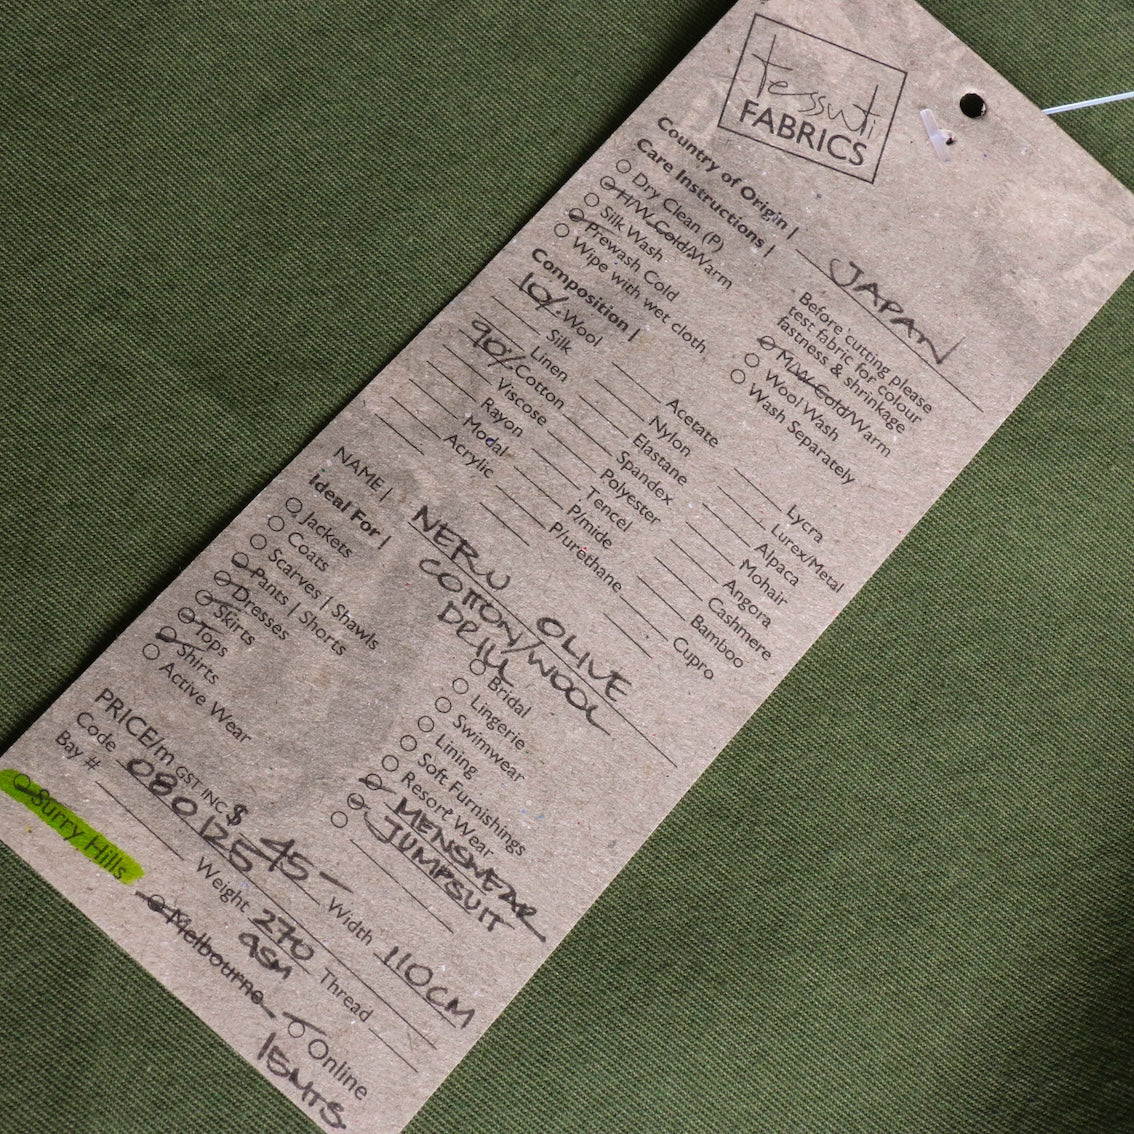 tessuti
FABRICS
Country of Origin | JAPAN
Care Instructions |
Dry Clean (P)
H/W Cold/Warm
Silk Wash
Prewash Cold
Wipe with wet cloth
Before cutting please
test fabric for colour
fastness & shrinkage
M/W Cold/Warm
Wool Wash
Wash Separately
Composition |
10% Wool
Silk
Linen
90% Cotton
Viscose
Rayon
Modal
Acrylic
Acetate
Nylon
Elastane
Spandex
Polyester
Tencel
P/mide
P/urethane
Lycra
Lurex/Metal
Alpaca
Mohair
Angora
Cashmere
Bamboo
Cupro
NAME | NERU OLIVE
COTTON/WOOL
DRILL
Ideal For |
Jackets
Coats
Scarves | Shawls
Pants | Shorts
Dresses
Skirts
Tops
Shirts
Active Wear
Bridal
Lingerie
Swimwear
Lining
Soft Furnishings
Resort Wear
MENSWEAR
JUMPSUIT
PRICE/m GST INC $ 45-
Code 080125 Width 110CM
Bay # Weight 270 GSM Thread
Surry Hills Melbourne Online
15MTS